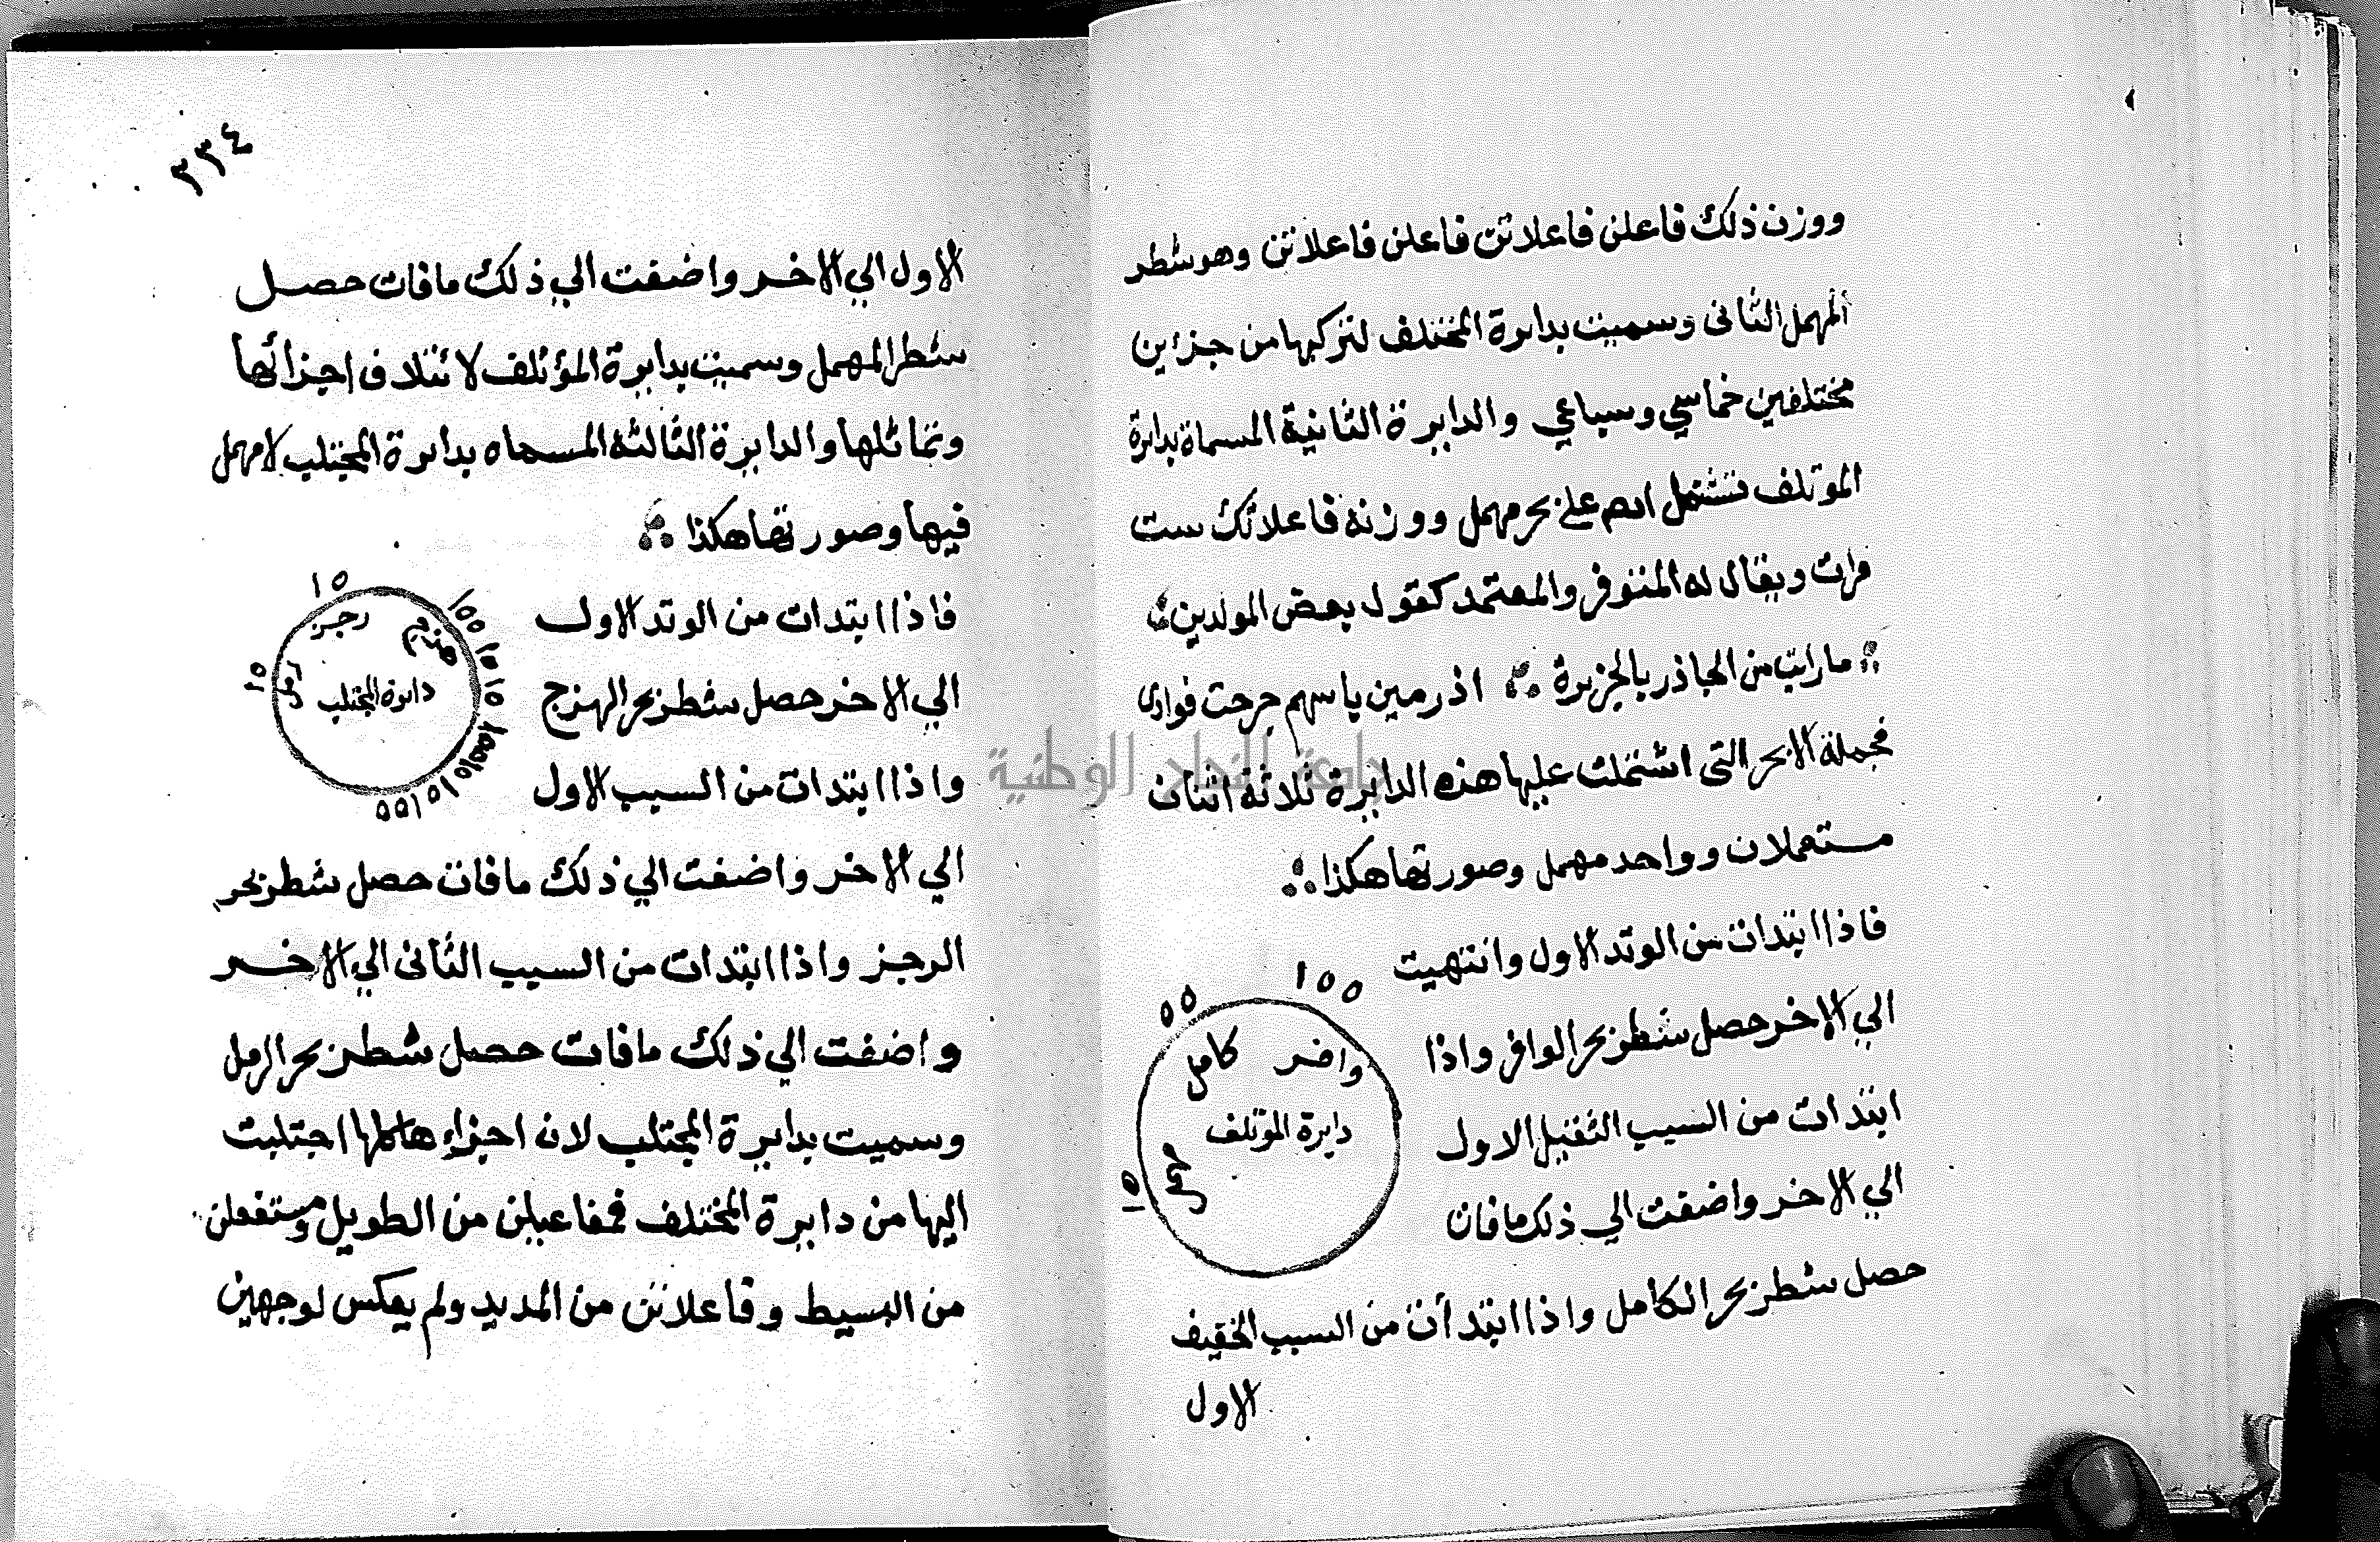 ووزن ذلك فاعلن فاعلاتن فاعلن فاعلاتن وهو شطر
المهمل الثانى وسميت بدايرة المختلف لتركبها من جزئين
مختلفين خماسي وسباعي والدايرة الثانية المسماة بدايرة
الموتلف تشتمل ايضم على بحر مهمل ووزنه فاعلاتك ست
مرات ويقال له المتوفر والمعتمد كقول بعض المولدين
ما رايت من الجاذر بالجزيرة اذ رمين باسهم جرحت فوادى
فجملة الابحر التى اشتملت عليها هذه الدايرة ثلاثة اثنان
مستعملان وواحد مهمل وصورتها هكذا
فاذا ابتدات من الوتد الاول وانتهيت
الي الاخر حصل شطر بحر الوافر واذا
ابتدات من السبب الثقيل الاول
الي الاخر واضفت الي ذلك ما فات
حصل شطر بحر الكامل واذا ابتدأت من السبب الخفيف
الاول
١٥٥
٥٥
وافر كامل
دايرة الموتلف
مهمل
١٥
٣٣٤
الاول الي الاخر واضفت الي ذلك ما فات حصل
شطر المهمل وسميت بدايرة المؤتلف لائتلاف اجزائها
وتماثلها والدايرة الثالثة المسماه بدايرة المجتلب لا مهمل
فيها وصورتها هكذا
فاذا ابتدات من الوتد الاول
الي الاخر حصل شطر بحر الهزج
واذا ابتدات من السبب الاول
الي الاخر واضفت الي ذلك ما فات حصل شطر بحر
الرجز واذا ابتدات من السبب الثانى الي الاخر
واضفت الي ذلك ما فات حصل شطر بحر الرمل
وسميت بدايرة المجتلب لان اجزاءها كلها اجتلبت
اليها من دايرة المختلف فمفاعيلن من الطويل ومستفعلن
من البسيط وفاعلاتن من المديد ولم يعكس لوجهين
١٥
هزج رجز
رمل
دايرة المجتلب
١٥
جامعة النجاح الوطنية